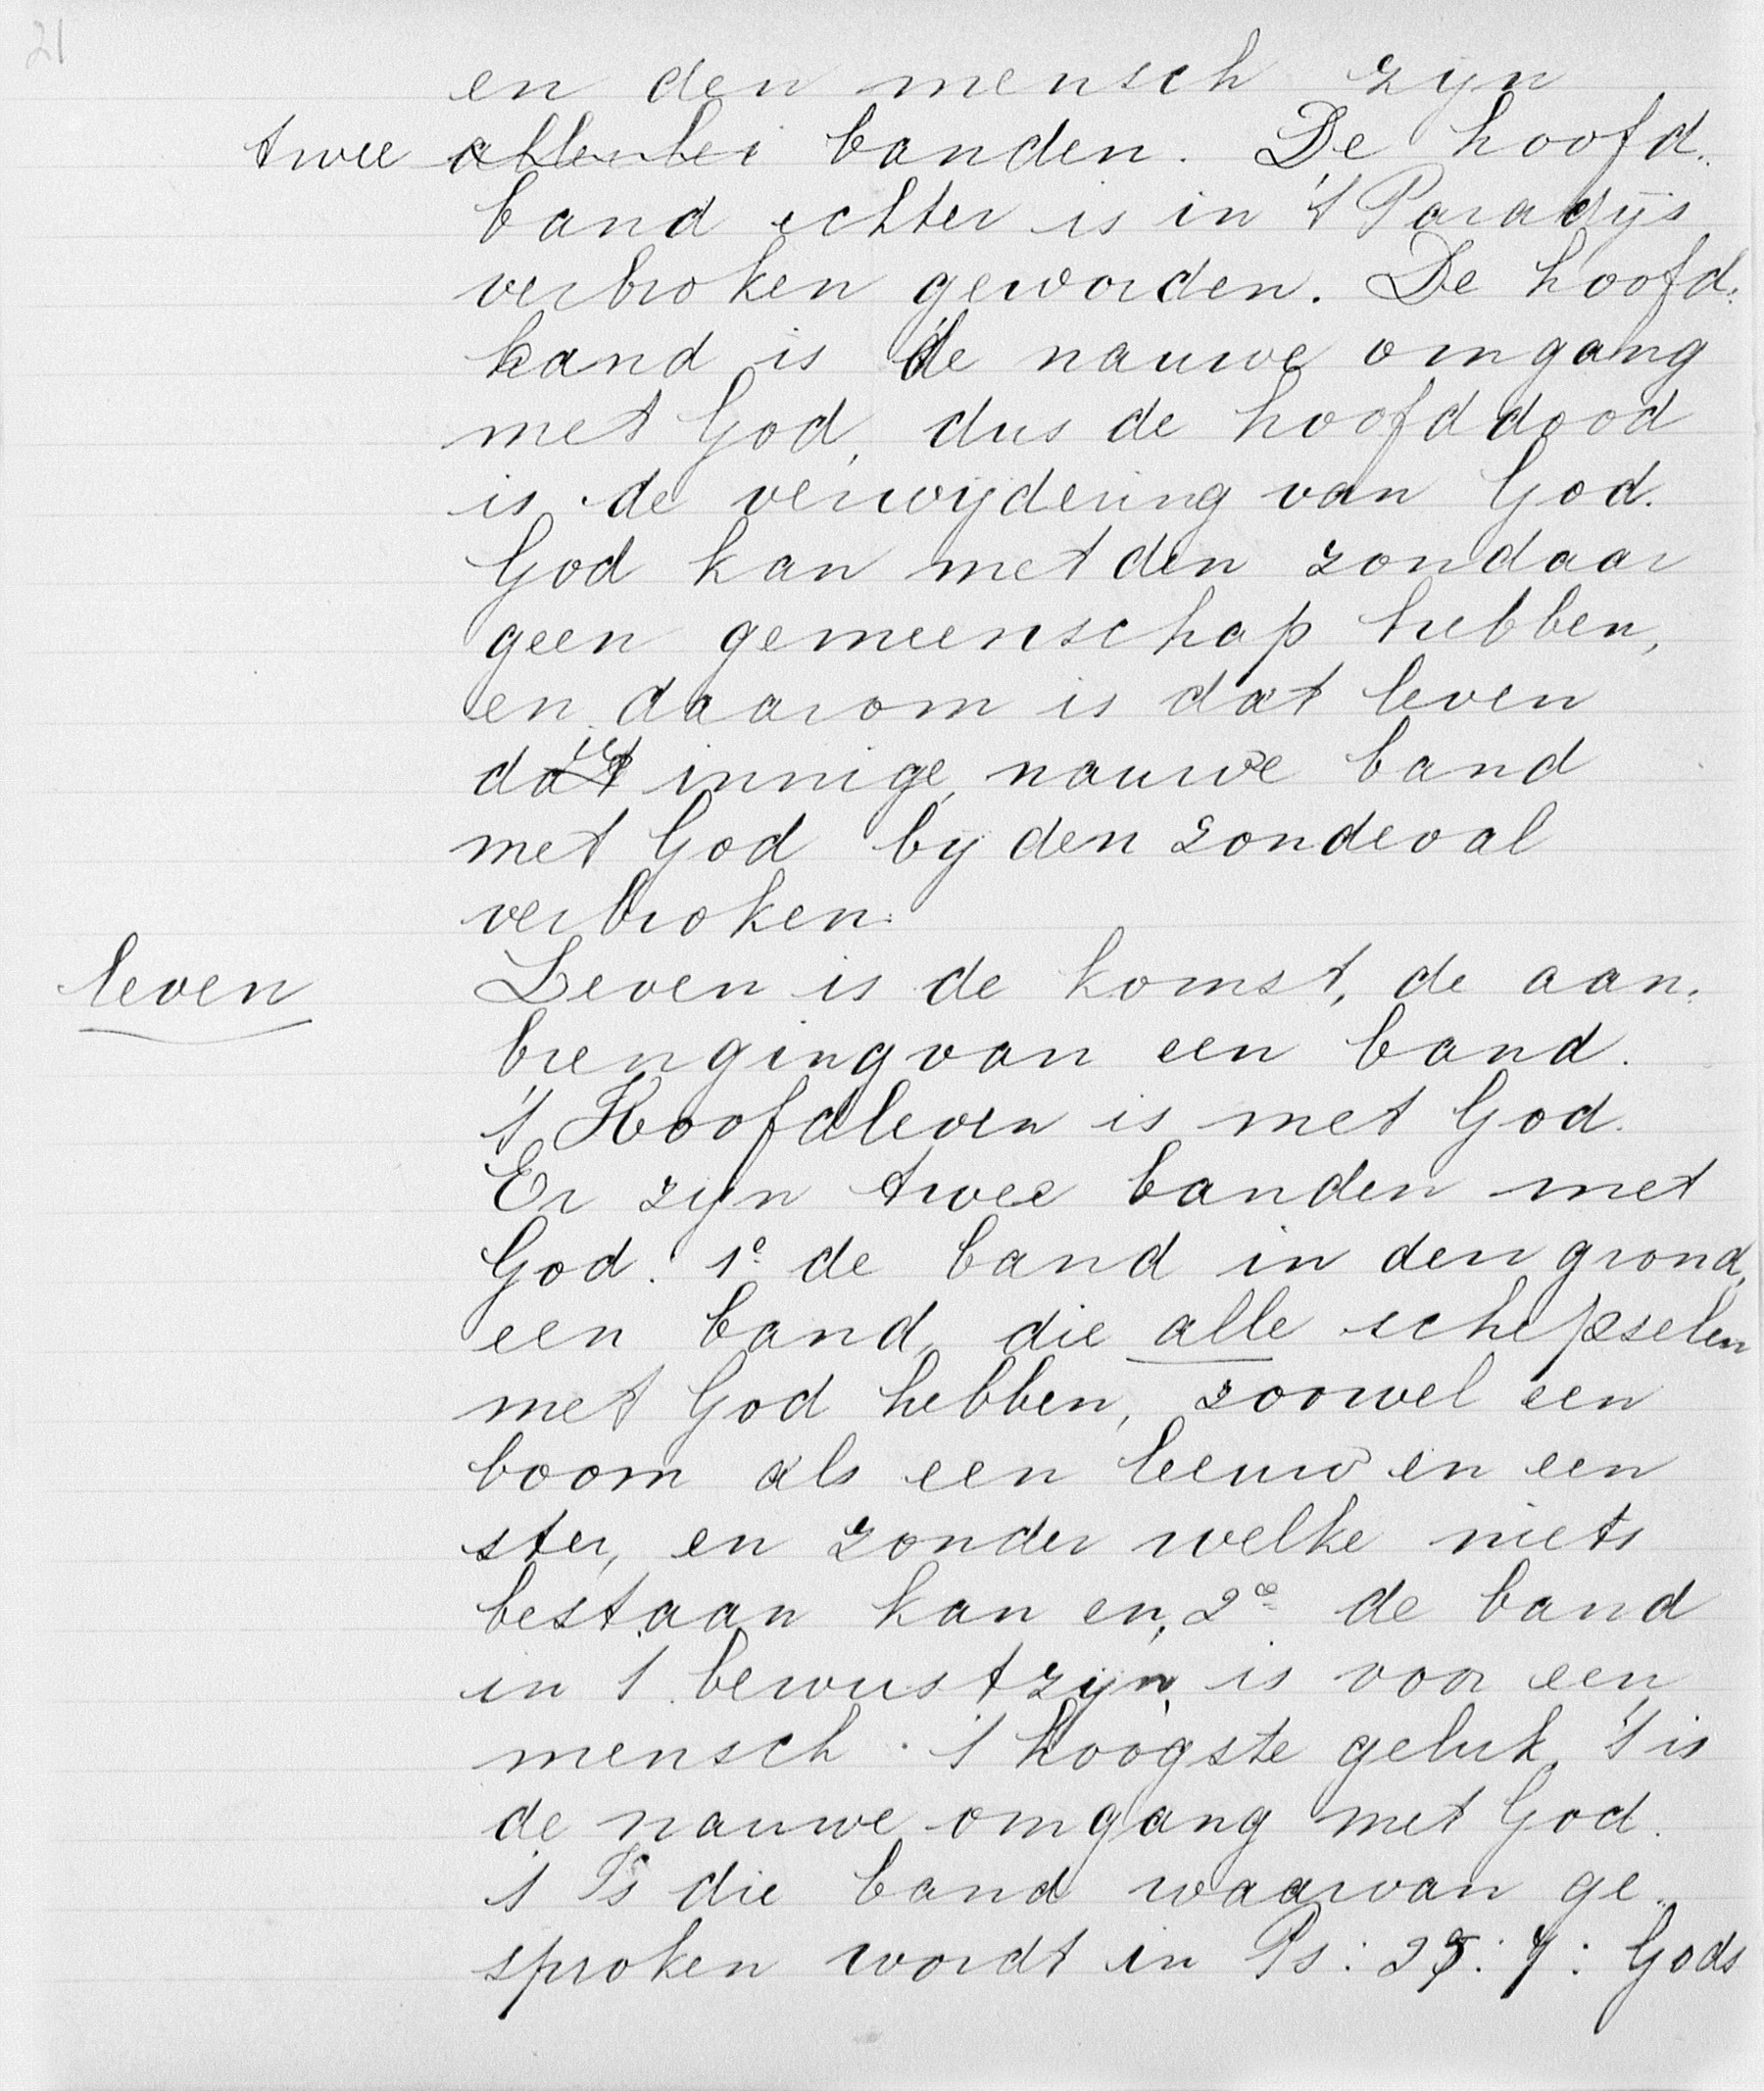 21
en den mensch zijn
twee allerlei banden. De hoofd-
band echter is in 't Paradijs
verbroken geworden. De hoofd-
band is de nauwe omgang
met God, dus de hoofddood
is de verwijdering van God.
God kan met den zondaar
geen gemeenschap hebben,
en daarom is dat leven
die innige, nauwe band
met God bij den zondeval
verbroken.
leven Leven is de komst, de aan-
brenging van een band.
't Hoofdleven is met God.
Er zijn twee banden met
God. 1e de band in den grond,
een band, die alle schepselen
met God hebben, zoowel een
boom als een leeuw en een
ster, en zonder welke niets
bestaan kan en, 2e de band
in 't bewustzijn, is voor een
mensch 't hoogste geluk, 't is
de nauwe omgang met God.
't Is die band waarvan ge-
sproken wordt in Ps: 25: 7: Gods